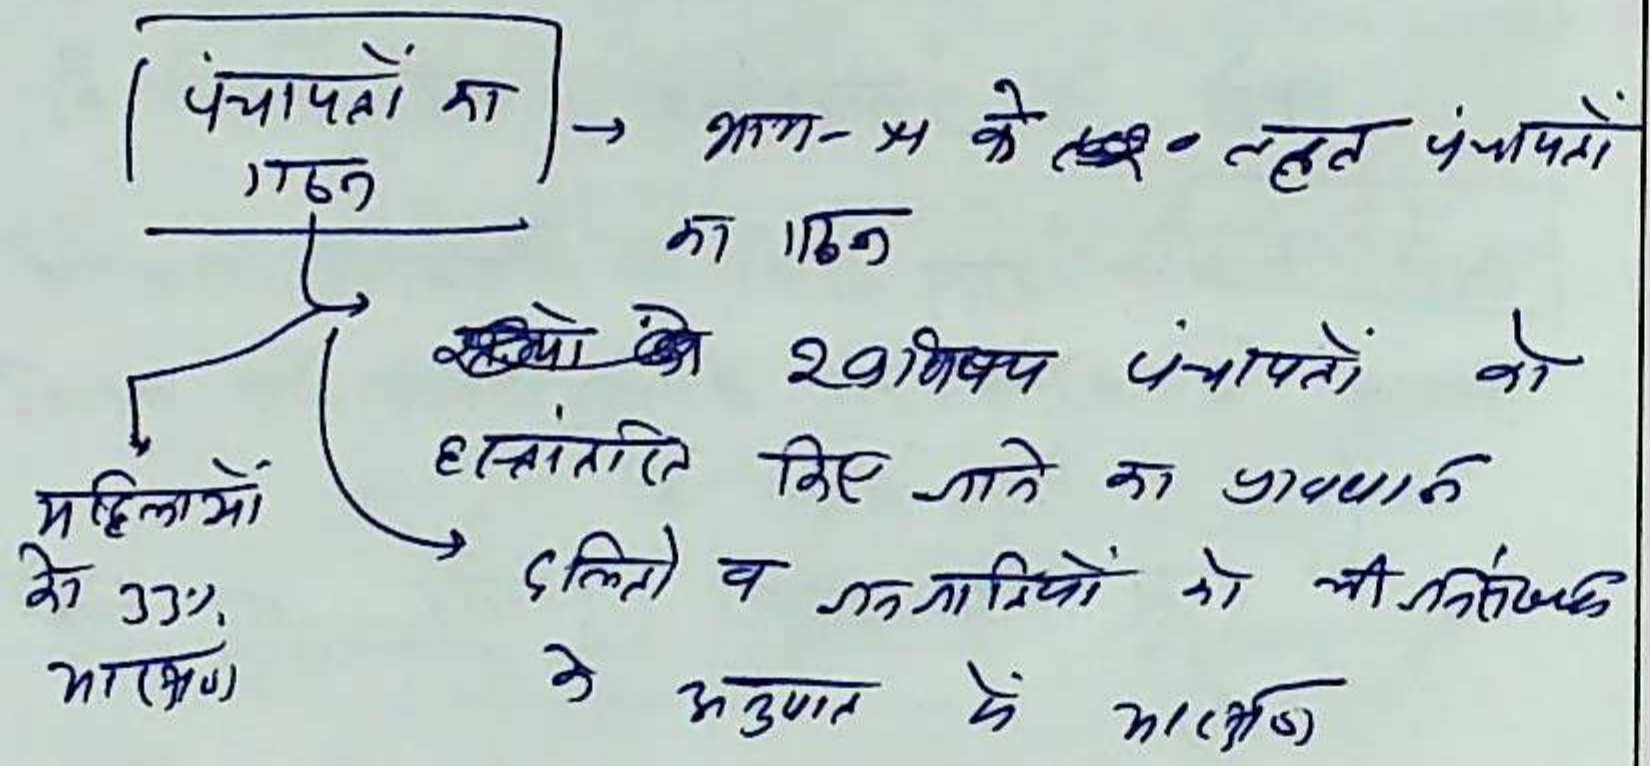 पंचायतों का
गठन
→ भाग-9 के तहत पंचायतों
का गठन
29 विषय पंचायतों को
हस्तांतरित किए जाने का प्रावधान
महिलाओं
को 33%
आरक्षण
दलितों व जनजातियों को भी जनसंख्या
के अनुपात में आरक्षण